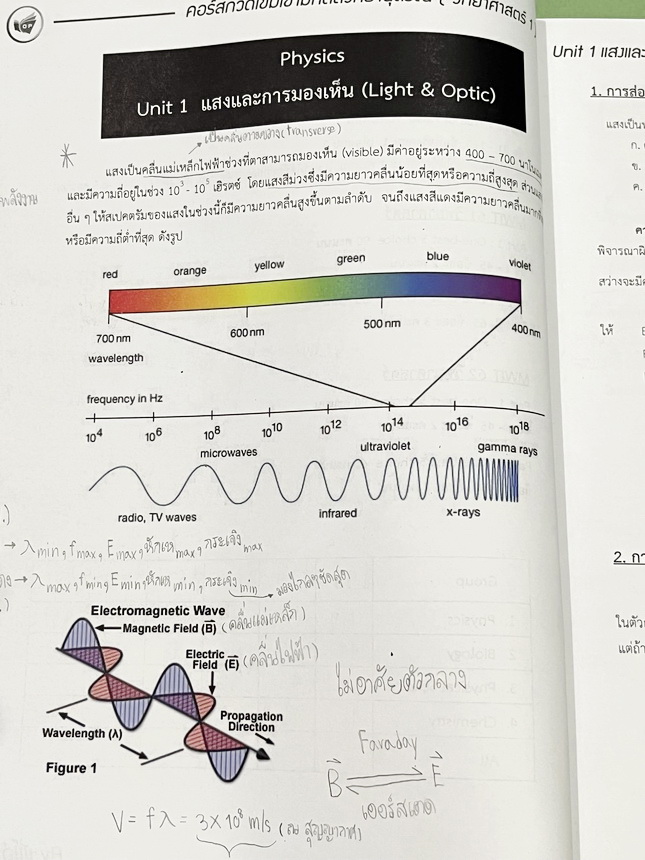 คอร์สกวดเข้มเข้ามหิดลวิทยานุสรณ์ ( วิทยาศาสตร์ 1
Physics
Unit 1 แสงและการมองเห็น (Light & Optic)
เป็นคลื่นตามขวาง (transverse)
แสงเป็นคลื่นแม่เหล็กไฟฟ้าช่วงที่ตาสามารถมองเห็น (visible) มีค่าอยู่ระหว่าง 400 – 700
และมีความถี่อยู่ในช่วง เฮิรตซ์ โดยแสงสีม่วงซึ่งมีความยาวคลื่นน้อยที่สุดหรือความถี่สูงสุด
พลังงาน
อื่น ๆ ให้สเปคตรัมของแสงในช่วงนี้ก็มีความยาวคลื่นสูงขึ้นตามลำดับ จนถึงแสงสีแดงมีความยาวคลื่น
หรือมีความถี่ต่ำที่สุด ดังรูป
red orange yellow green blue violet
700 nm 600 nm 500 nm 400 nm
wavelength
frequency in Hz
10⁴ 10⁶ 10⁸ 10¹⁰ 10¹² 10¹⁴ 10¹⁶ 10¹⁸
microwaves ultraviolet gamma rays
radio, TV waves infrared x-rays
→ λmin, fmax, Emax, หักเหmax, กระเจิงmax
→ λmax, fmin, Emin, หักเหmin, กระเจิงmin
Electromagnetic Wave
Magnetic Field (B) (คลื่นแม่เหล็ก)
Electric
Field (E) (คลื่นไฟฟ้า)
ไม่อาศัยตัวกลาง
Propagation
Direction
Wavelength (λ)
Figure 1
Faraday
B E
เออร์สเตด
V = fλ = 3×10⁸ m/s (ณ สุญญากาศ)
Unit 1 แสงและ
1. การส่อ
แสงเป็น
ก.
ข.
ค.
พิจารณา
สว่างจะมี
ให้
2. กา
ในตัว
แต่ถ้า